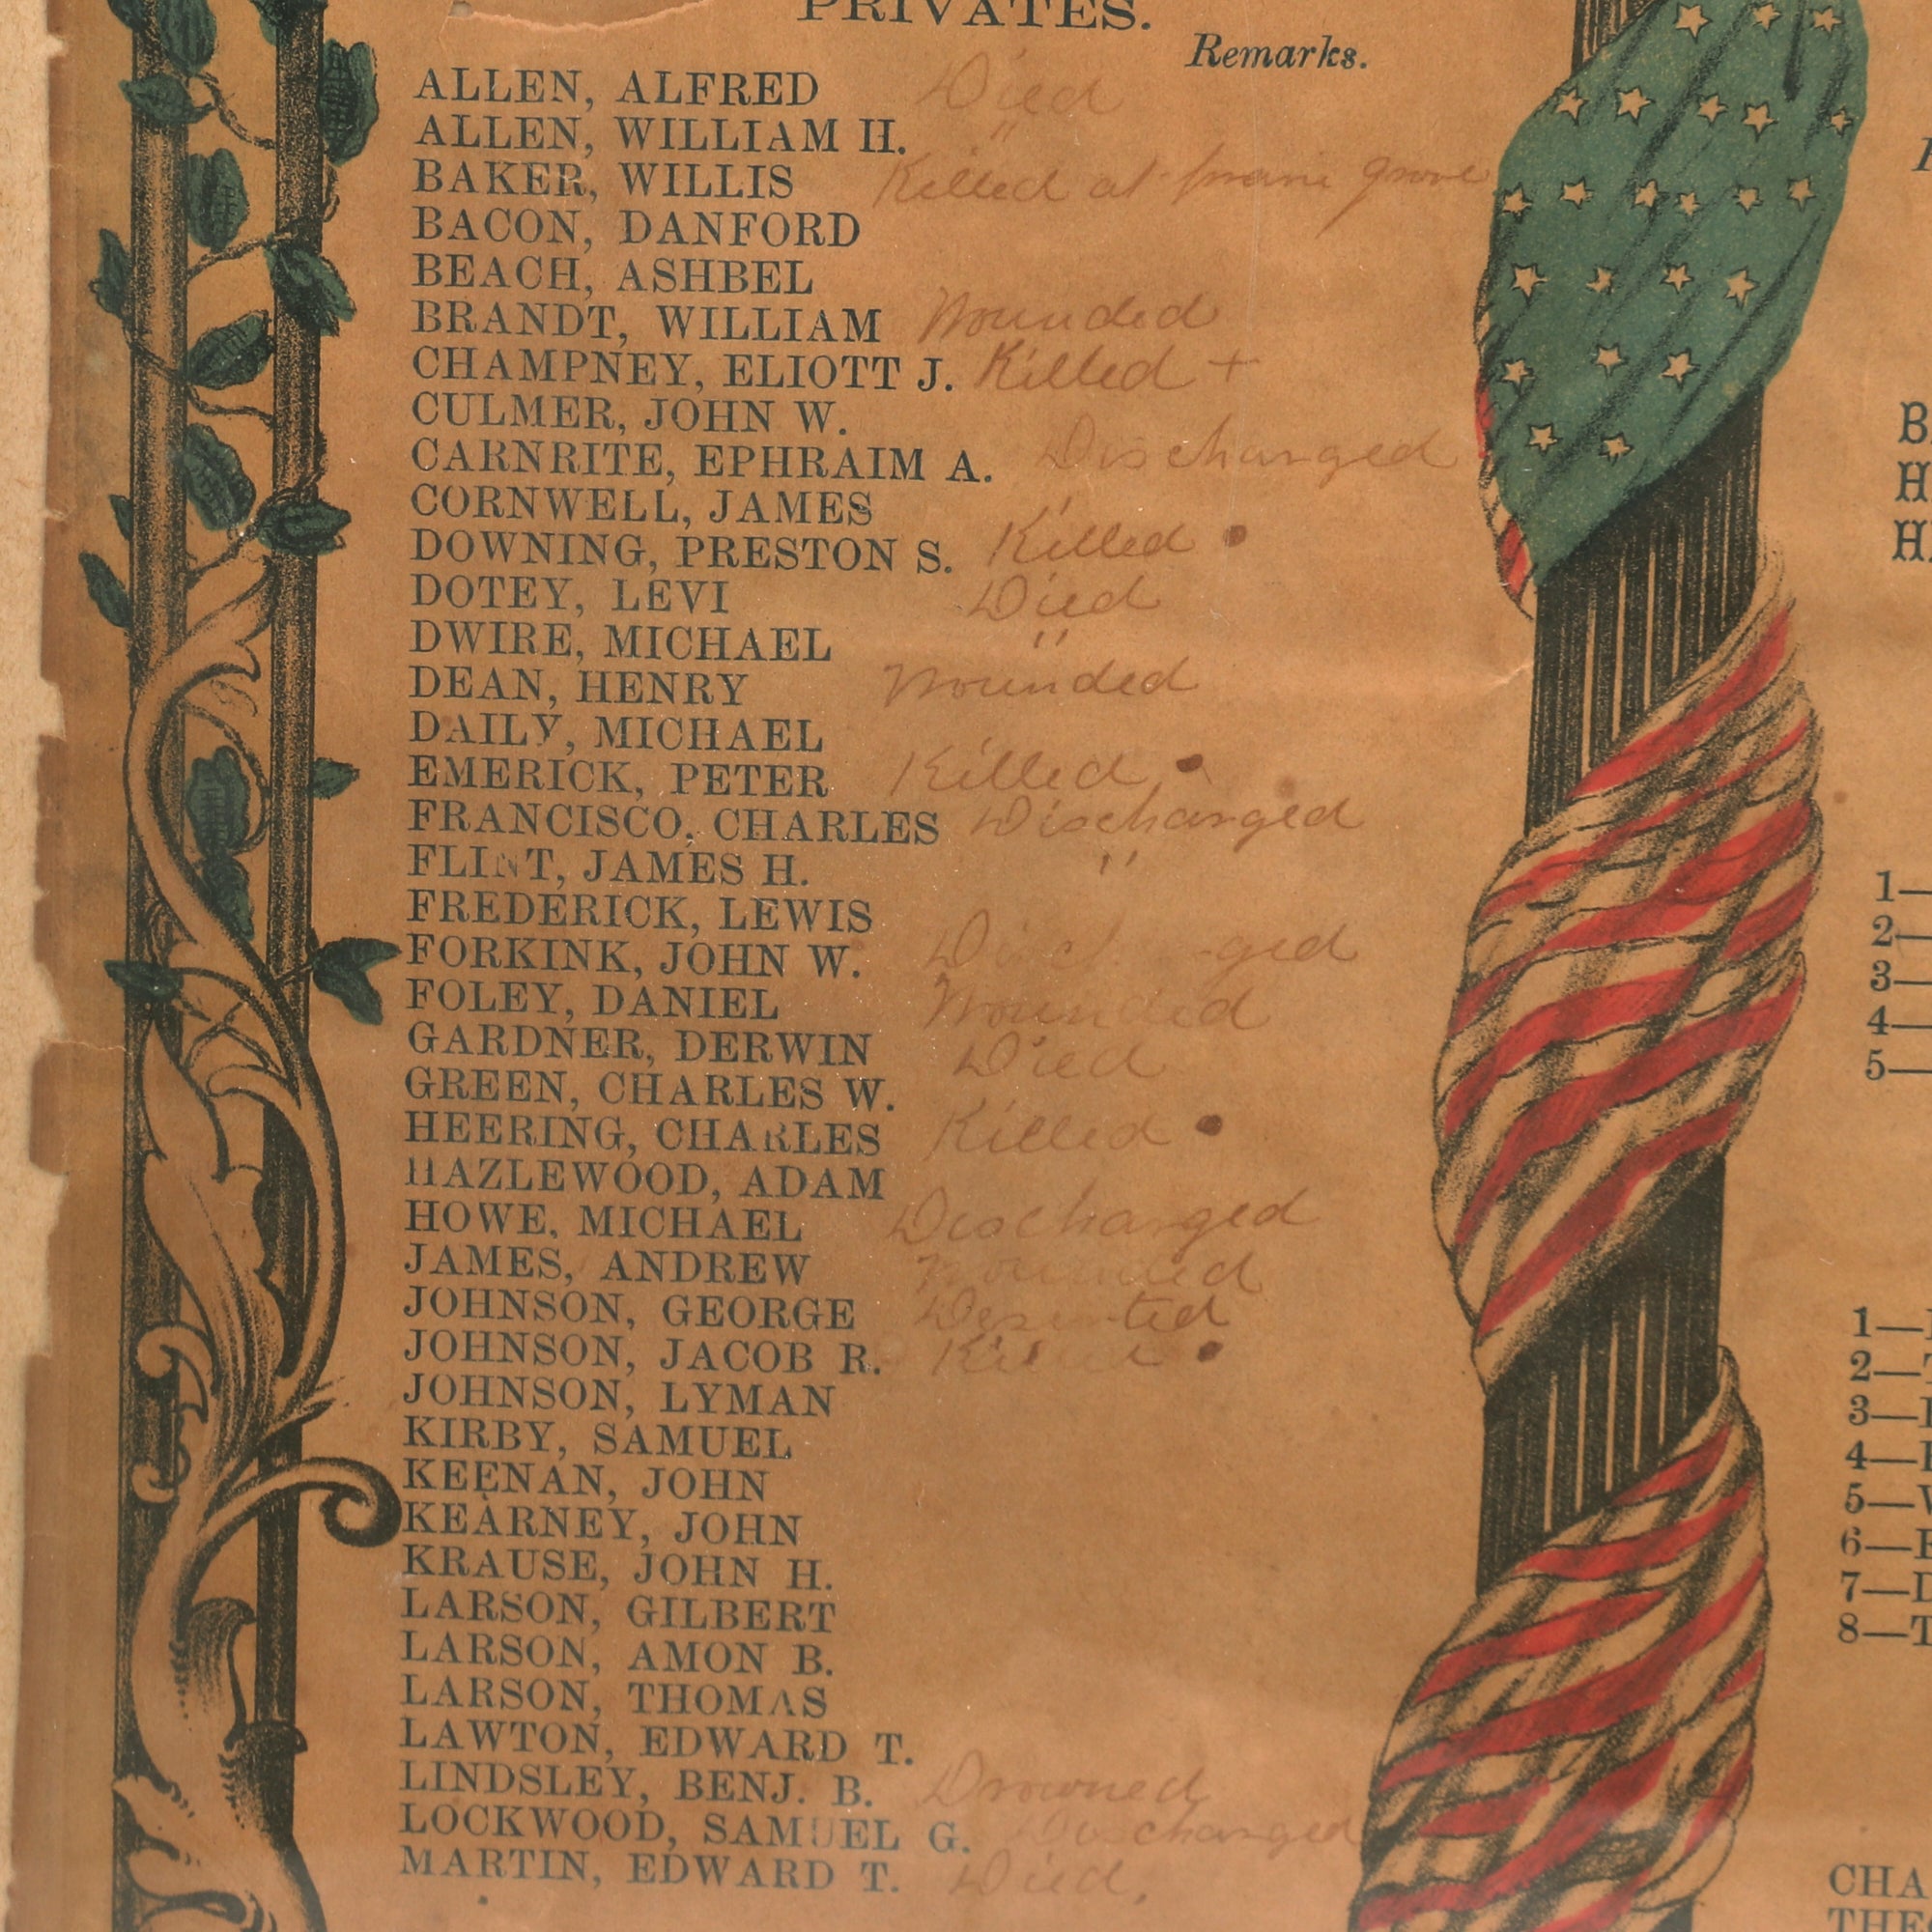 PRIVATES.
Remarks.
ALLEN, ALFRED Died
ALLEN, WILLIAM H. "
BAKER, WILLIS Killed at prarie grove
BACON, DANFORD
BEACH, ASHBEL
BRANDT, WILLIAM Wounded
CHAMPNEY, ELIOTT J. Killed +
CULMER, JOHN W.
CARNRITE, EPHRAIM A. Discharged
CORNWELL, JAMES
DOWNING, PRESTON S. Killed •
DOTEY, LEVI Died
DWIRE, MICHAEL "
DEAN, HENRY Wounded
DAILY, MICHAEL
EMERICK, PETER Killed •
FRANCISCO, CHARLES Discharged
FLINT, JAMES H. "
FREDERICK, LEWIS
FORKINK, JOHN W. Discharged
FOLEY, DANIEL Wounded
GARDNER, DERWIN Died
GREEN, CHARLES W.
HEERING, CHARLES Killed •
HAZLEWOOD, ADAM
HOWE, MICHAEL Discharged
JAMES, ANDREW Wounded
JOHNSON, GEORGE Deserted
JOHNSON, JACOB R. Killed •
JOHNSON, LYMAN
KIRBY, SAMUEL
KEENAN, JOHN
KEARNEY, JOHN
KRAUSE, JOHN H.
LARSON, GILBERT
LARSON, AMON B.
LARSON, THOMAS
LAWTON, EDWARD T.
LINDSLEY, BENJ. B. Drowned
LOCKWOOD, SAMUEL G. Discharged
MARTIN, EDWARD T. Died.
B
H
H.
1—
2—
3—
4—
5—
1—
2—T
3—
4—
5—
6—
7—
8—T
CHA
THE